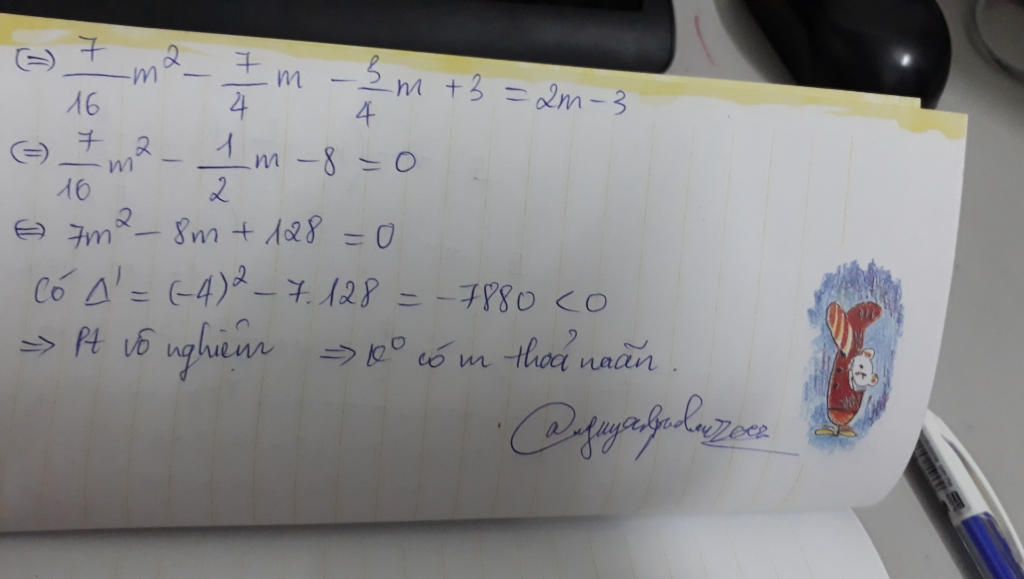 (=) 7/16 m² - 7/4 m - 3/4 m + 3 = 2m - 3
(=) 7/16 m² - 1/2 m - 8 = 0
⇔ 7m² - 8m + 128 = 0
Có Δ' = (-4)² - 7.128 = -7880 < 0
⇒ Pt vô nghiệm ⇒ k⁰ có m thoả mãn.